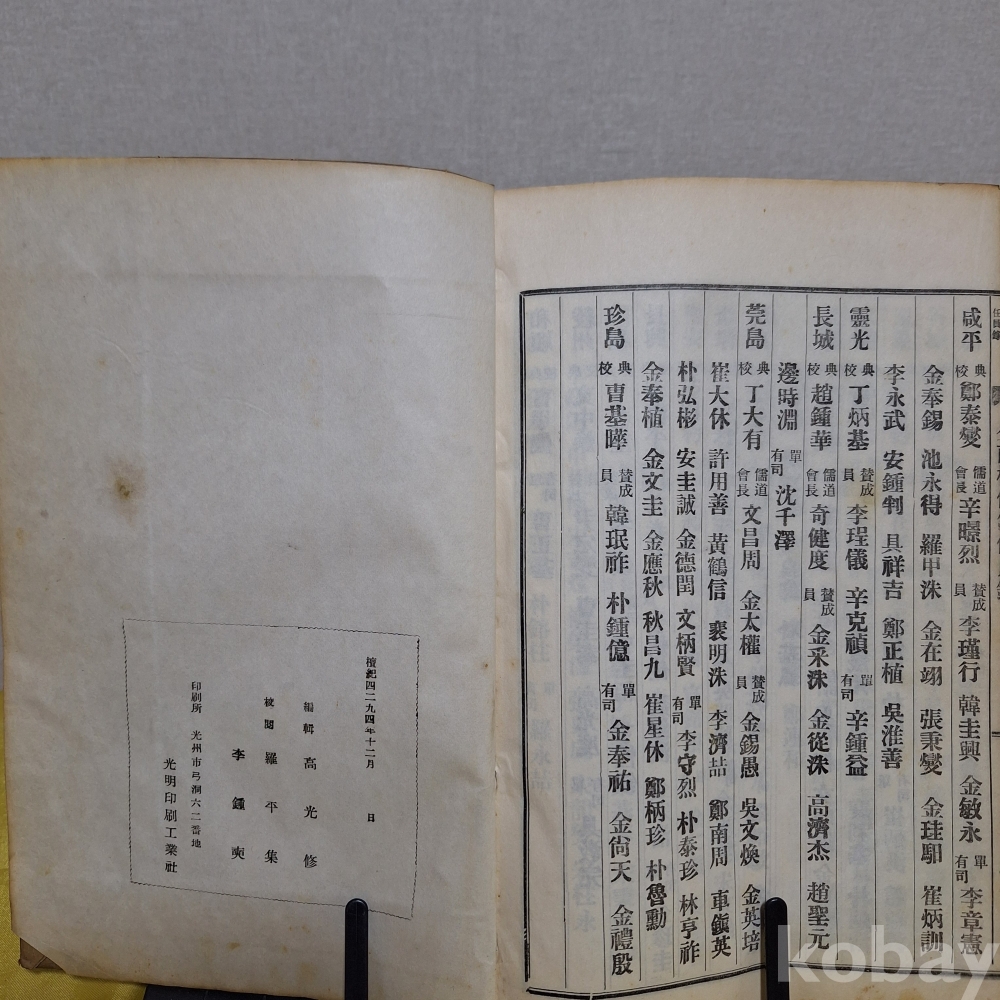 咸平 典校 鄭泰燮 儒道會長 辛曔烈 賛成員 李瑾行 韓圭興 金敏永 單有司 李章憲
金奉錫 池永得 羅甲洙 金在翊 張秉燮 金珪馹 崔炳訓
李永武 安鍾判 具祥吉 鄭正植 吳淮善
靈光 典校 丁炳基 賛成員 李珵儀 辛克禎 單有司 辛鍾益
長城 典校 趙鍾華 儒道會長 奇健度 賛成員 金采洙 金從洙 高濟杰 趙聖元
邊時淵 單有司 沈千澤
莞島 典校 丁大有 儒道會長 文昌周 金太權 賛成員 金錫愚 吳文煥 金英培
崔大休 許用善 黃鶴信 裵明洙 李濟喆 鄭南周 車鎭英
朴弘彬 安圭誠 金德閏 文柄賢 單有司 李守烈 朴泰珍 林亨祚
金奉植 金文圭 金應秋 秋昌九 崔星休 鄭柄珍 朴魯勳
珍島 典校 曺基曄 賛成員 韓珉祚 朴鍾億 單有司 金奉祐 金尙天 金禮殷
檀紀四二九四年十二月 日
編輯 高光修
校閱 羅平集
李鍾奭
印刷所 光州市弓洞六二番地
光明印刷工業社
kobay